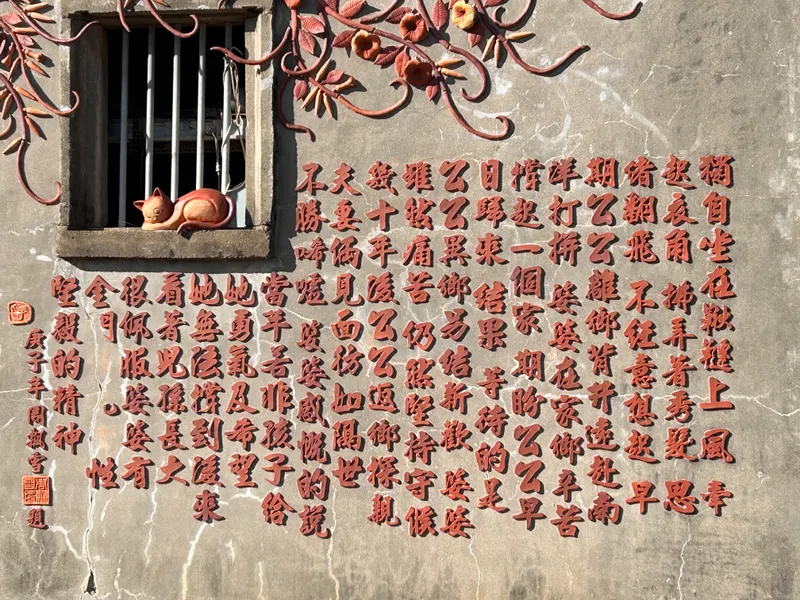 獨自坐在鞦韆上 風牽
起衣角 拂弄着秀髮 思
緒翻飛 不經意想起 早
期公公離鄉背井遠赴南
洋打拚 婆婆在家鄉辛苦
撐起一個家 期盼公公早
日歸來 結果 等待的是
公公異鄉另結新歡 婆婆
雖然痛苦 仍然堅持守候
幾十年後公公返鄉探親
夫妻倆見面彷如隔世
不勝唏噓 婆婆感慨的說
當年若非孩子給
她勇氣及希望
她無法撐到後來
看著兒孫長大
很佩服婆婆有
金門 性
堅毅的精神
庚子年周 雪 題